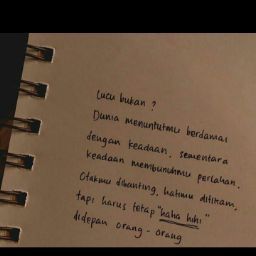 Lucu bukan ?
Dunia menuntutmu berdamai
dengan keadaan. sementara
keadaan membunuhmu perlahan.
Otakmu dibanting, hatimu ditikam,
tapi harus tetap "haha hihi"
didepan orang - orang